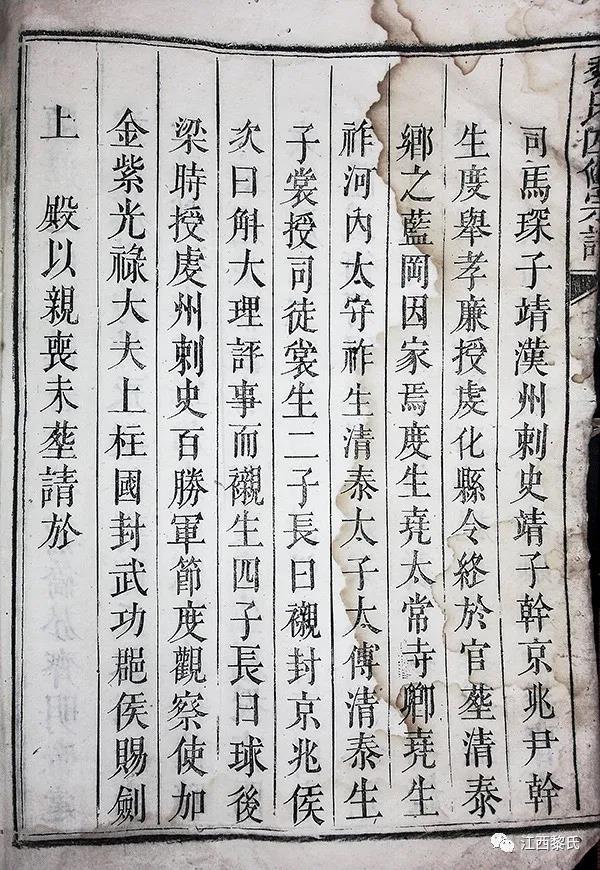 黎氏四修宗譜
司馬琛子靖漢州刺史靖子幹京兆尹幹
生度舉孝廉授虔化縣令終於官塟清泰
鄉之藍岡因家焉度生堯太常寺卿堯生
祚河內太守祚生清泰太子太傅清泰生
子裳授司徒裳生二子長曰襯封京兆侯
次曰斛大理評事而襯生四子長曰球後
梁時授虔州刺史百勝軍節度觀察使加
金紫光祿大夫上柱國封武功郡侯賜劍
上殿以親喪未塟請於
江西黎氏